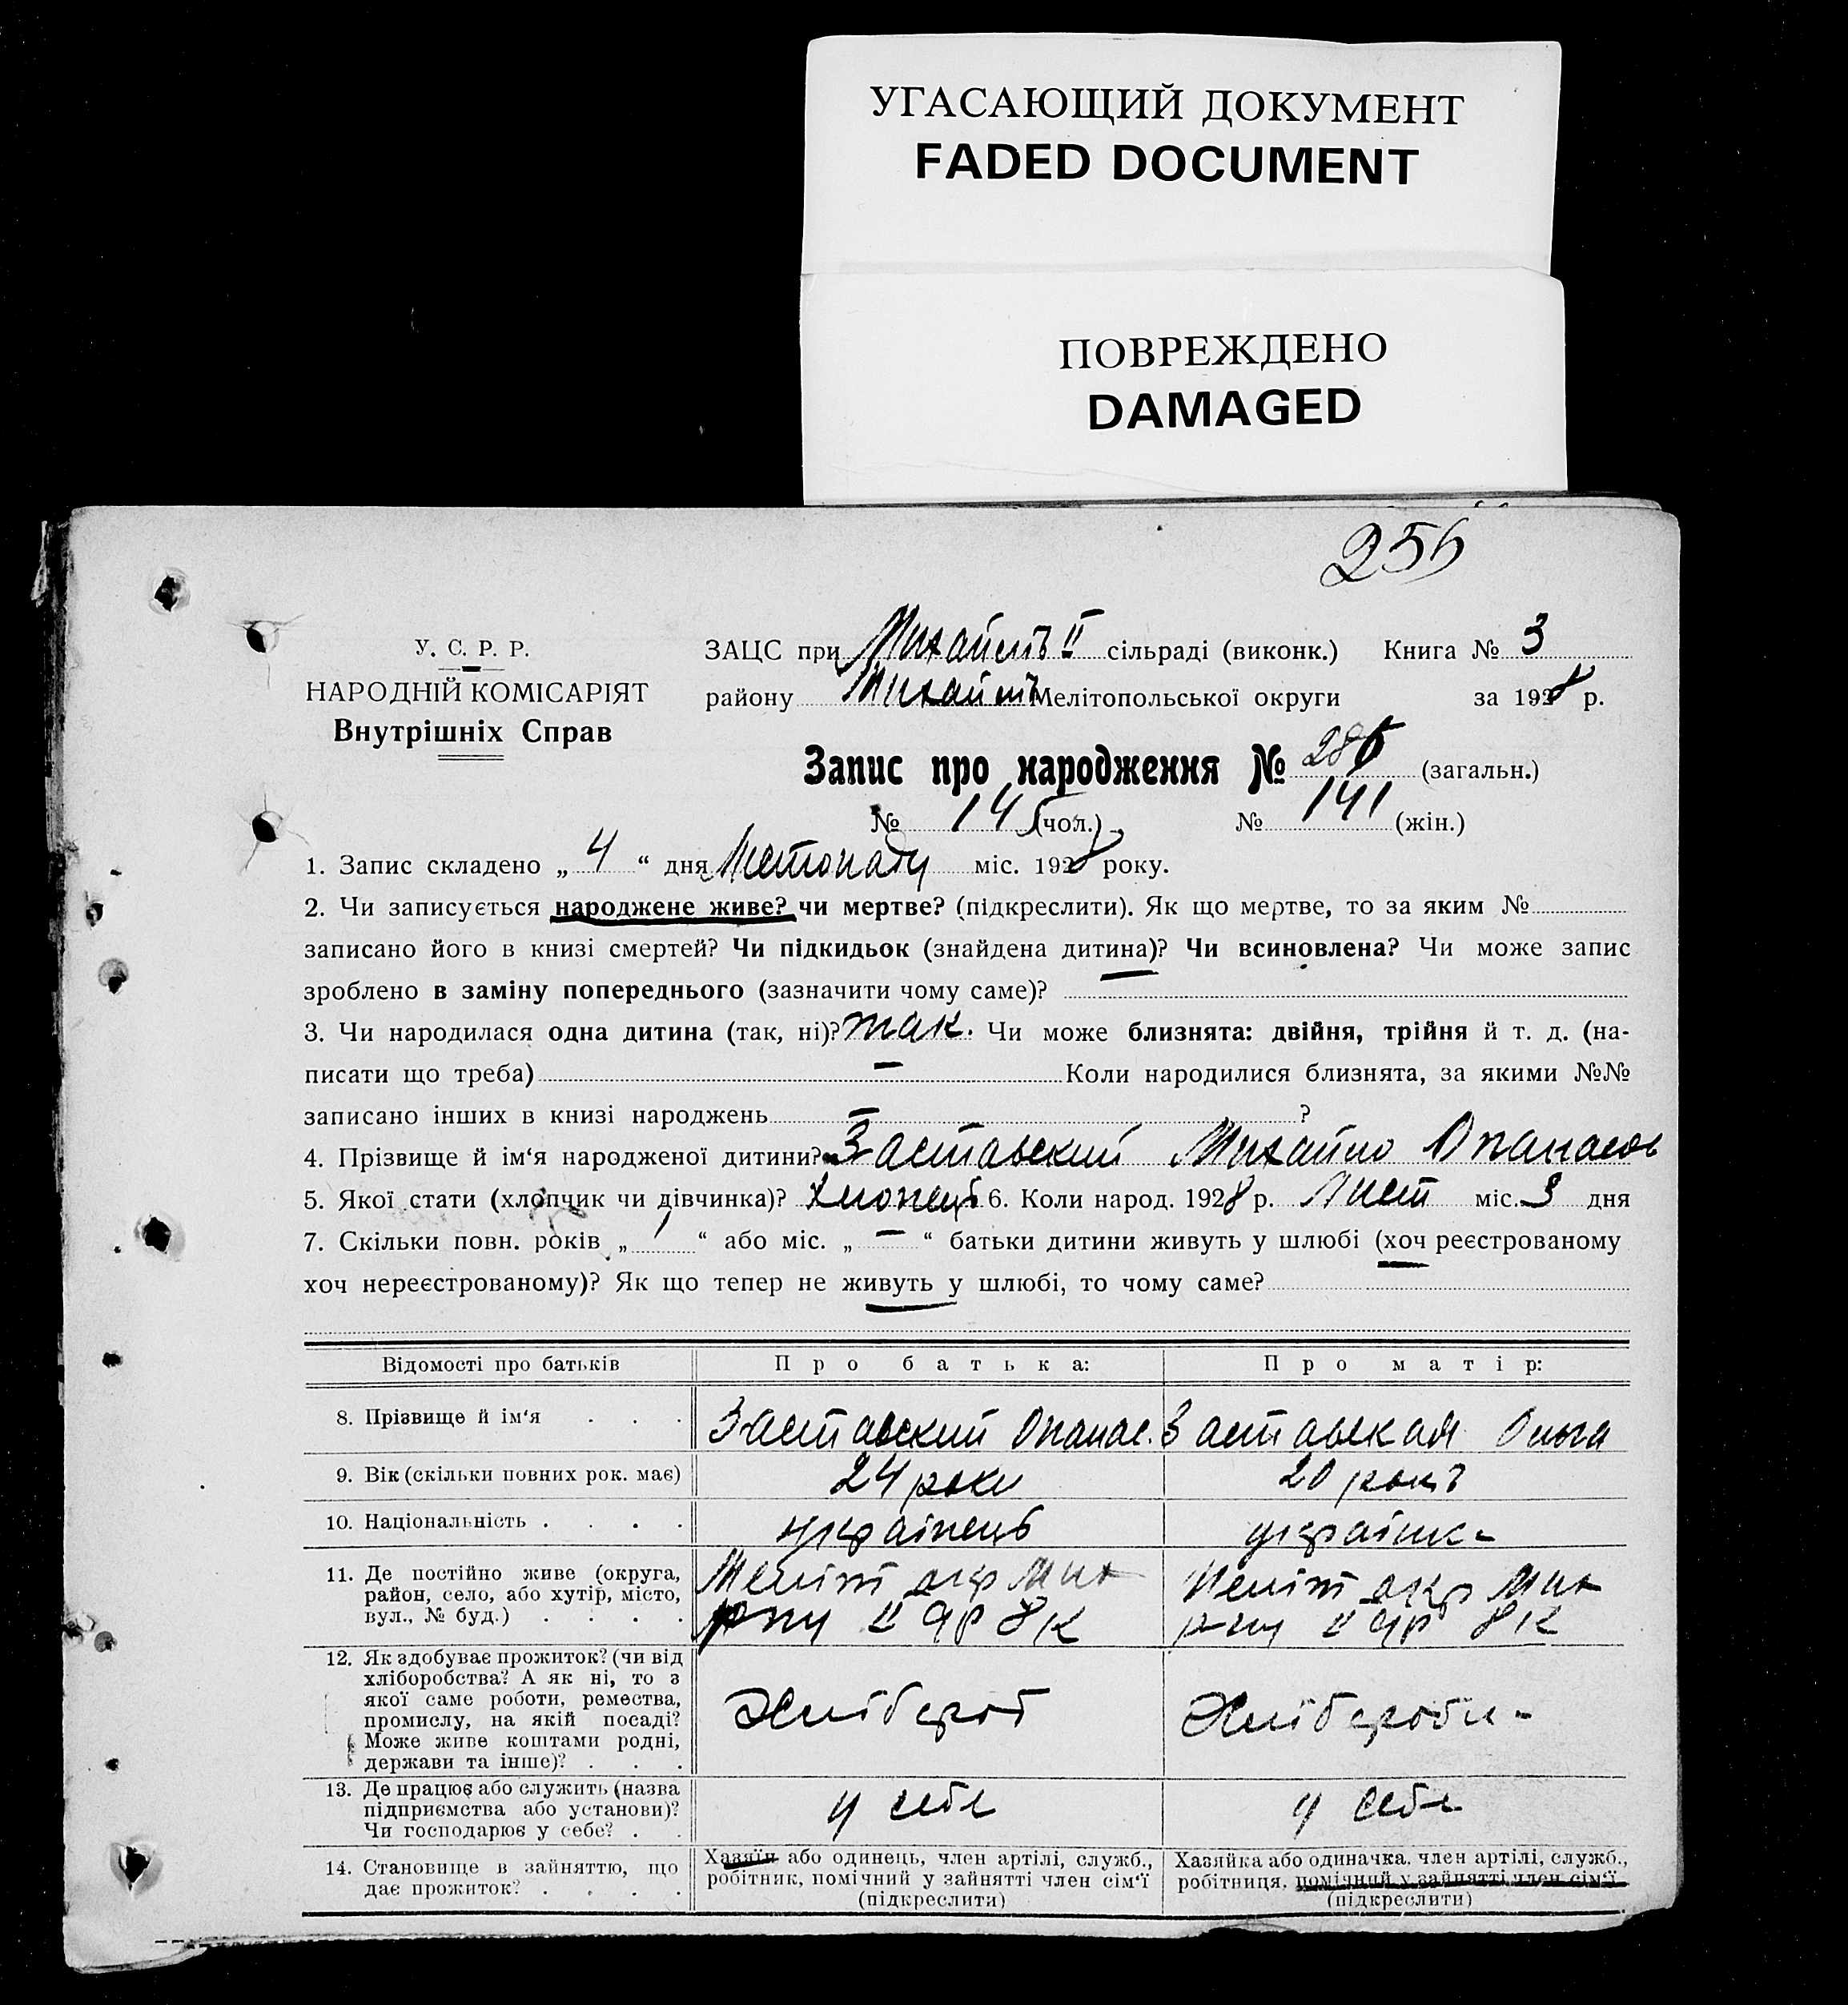 УГАСАЮЩИЙ ДОКУМЕНТ
FADED DOCUMENT
ПОВРЕЖДЕНО
DAMAGED
256
У. С. Р. Р.
НАРОДНІЙ КОМІСАРІЯТ
Внутрішніх Справ
ЗАЦС при Михайлів II сільраді (виконк.) Книга № 3
району Михайлів Мелітопольської округи за 1928 р.
Запис про народження № 286 (загальн.)
№ 145 (чол.) № 141 (жін.)
1. Запис складено „ 4 “ дня Листопаду міс. 1928 року.
2. Чи записується народжене живе? чи мертве? (підкреслити). Як що мертве, то за яким №
записано його в книзі смертей? Чи підкидьок (знайдена дитина)? Чи всиновлена? Чи може запис
зроблено в заміну попереднього (зазначити чому саме)?
3. Чи народилася одна дитина (так, ні)? так. Чи може близнята: двійня, трійня й т. д. (на-
писати що треба) — Коли народилися близнята, за якими №№
записано інших в книзі народжень — ?
4. Прізвище й ім‘я народженої дитини? Заставский Михайло Опанасов
5. Якої стати (хлопчик чи дівчинка)? Хлопець 6. Коли народ. 1928 р. Лист міс. 3 дня
7. Скільки повн. років „ 1 “ або міс. „ — “ батьки дитини живуть у шлюбі (хоч реєстрованому
хоч нереєстрованому)? Як що тепер не живуть у шлюбі, то чому саме?
Відомості про батьків Про батька: Про матір:
8. Прізвище й ім‘я . . . Заставский Опанас. Заставская Ольга
9. Вік (скільки повних рок. має) 24 роки 20 років
10. Національність . . . . українець українк-
11. Де постійно живе (округа,
район, село, або хутір, місто,
вул., № буд.) . . . .
Меліт окр Мих
рну II 8К
Меліт окр Мих
рну II 8К
12. Як здобуває прожиток? (чи від
хліборобства? А як ні, то з
якої саме роботи, ремества,
промислу, на якій посаді?
Може живе коштами родні,
держави та інше)? . . .
Хлібороб
Хлібороби-
13. Де працює або служить (назва
підприємства або установи)?
Чи господарює у себе? . .
у себе
у себе
14. Становище в зайняттю, що
дає прожиток? . . . .
Хазяїн або одинець, член артілі, служб.,
робітник, помічний у зайнятті член сім‘ї
(підкреслити)
Хазяйка або одиначка, член артілі, служб.,
робітниця, помічний у зайнятті член сім‘ї
(підкреслити)